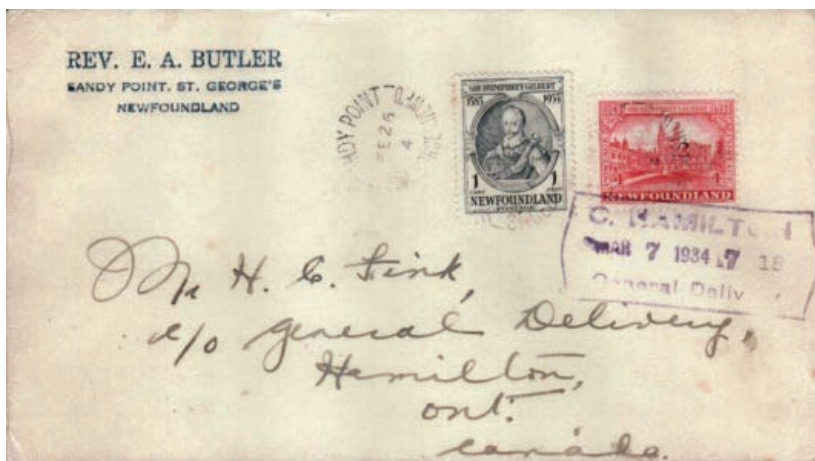 REV. E. A. BUTLER
SANDY POINT. ST. GEORGE'S
NEWFOUNDLAND
DY POINT
FE 26
4
SIR HUMPHREY GILBERT
1583 1933
1 1
CENT CENT
NEWFOUNDLAND
POSTAGE
4 4
NEWFOUNDLAND
C. HAMILTON
MAR 7 1934 18
General Deliv
Mr H. C. Fink,
c/o General Delivery,
Hamilton,
Ont.
Canada.